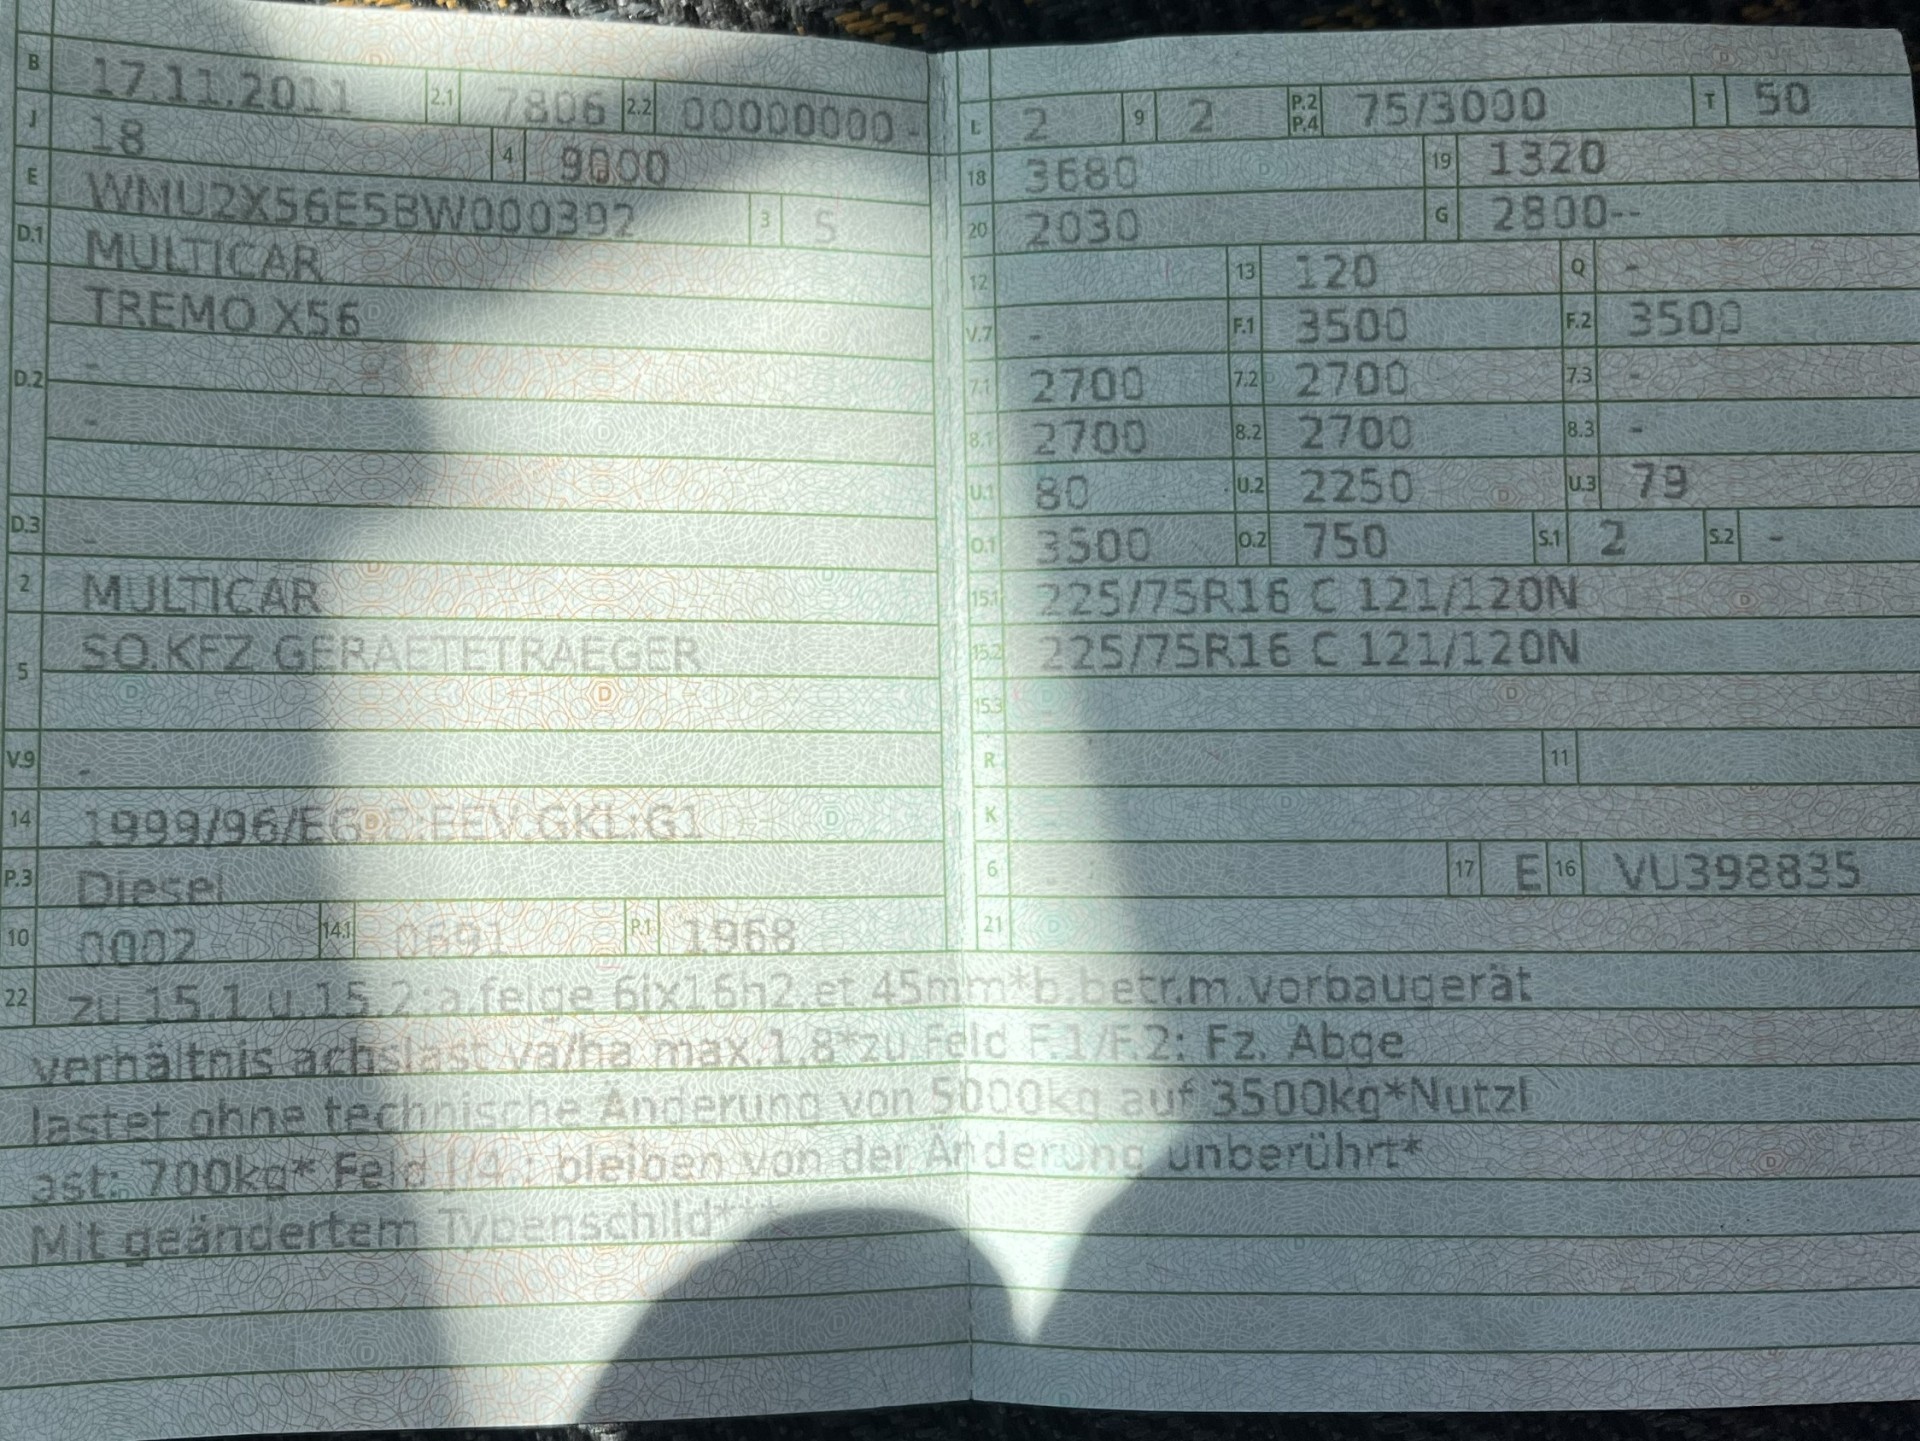 B 17.11.2011 2.1 7806 2.2 00000000 -
J 18 4 9000
E WMU2X56E5BW000392 3 5
D.1 MULTICAR
D.2 TREMO X56
-
-
D.3 -
2 MULTICAR
5 SO.KFZ GERAETETRAEGER
V.9 -
14 1999/96/EG C:EEV:GKL:G1
P.3 Diesel
10 0002 14.1 0691 P.1 1968
L 2 9 2 P.2 P.4 75/3000 T 50
18 3680 19 1320
20 2030 G 2800--
12 13 120 Q -
V.7 - F.1 3500 F.2 3500
7.1 2700 7.2 2700 7.3 -
8.1 2700 8.2 2700 8.3 -
U.1 80 U.2 2250 U.3 79
O.1 3500 O.2 750 S.1 2 S.2 -
15.1 225/75R16 C 121/120N
15.2 225/75R16 C 121/120N
15.3
R 11
K -
6 - 17 E 16 VU398835
21
22 zu 15.1 u.15.2:a.felge 6jx16h2,et 45mm*b.betr.m.vorbaugerät
verhältnis achslast va/ha max.1,8*zu Feld F.1/F.2: Fz. Abge
lastet ohne technische Änderung von 5000kg auf 3500kg*Nutzl
ast: 700kg* Feld J/4.: bleiben von der Änderung unberührt*
Mit geändertem Typenschild***